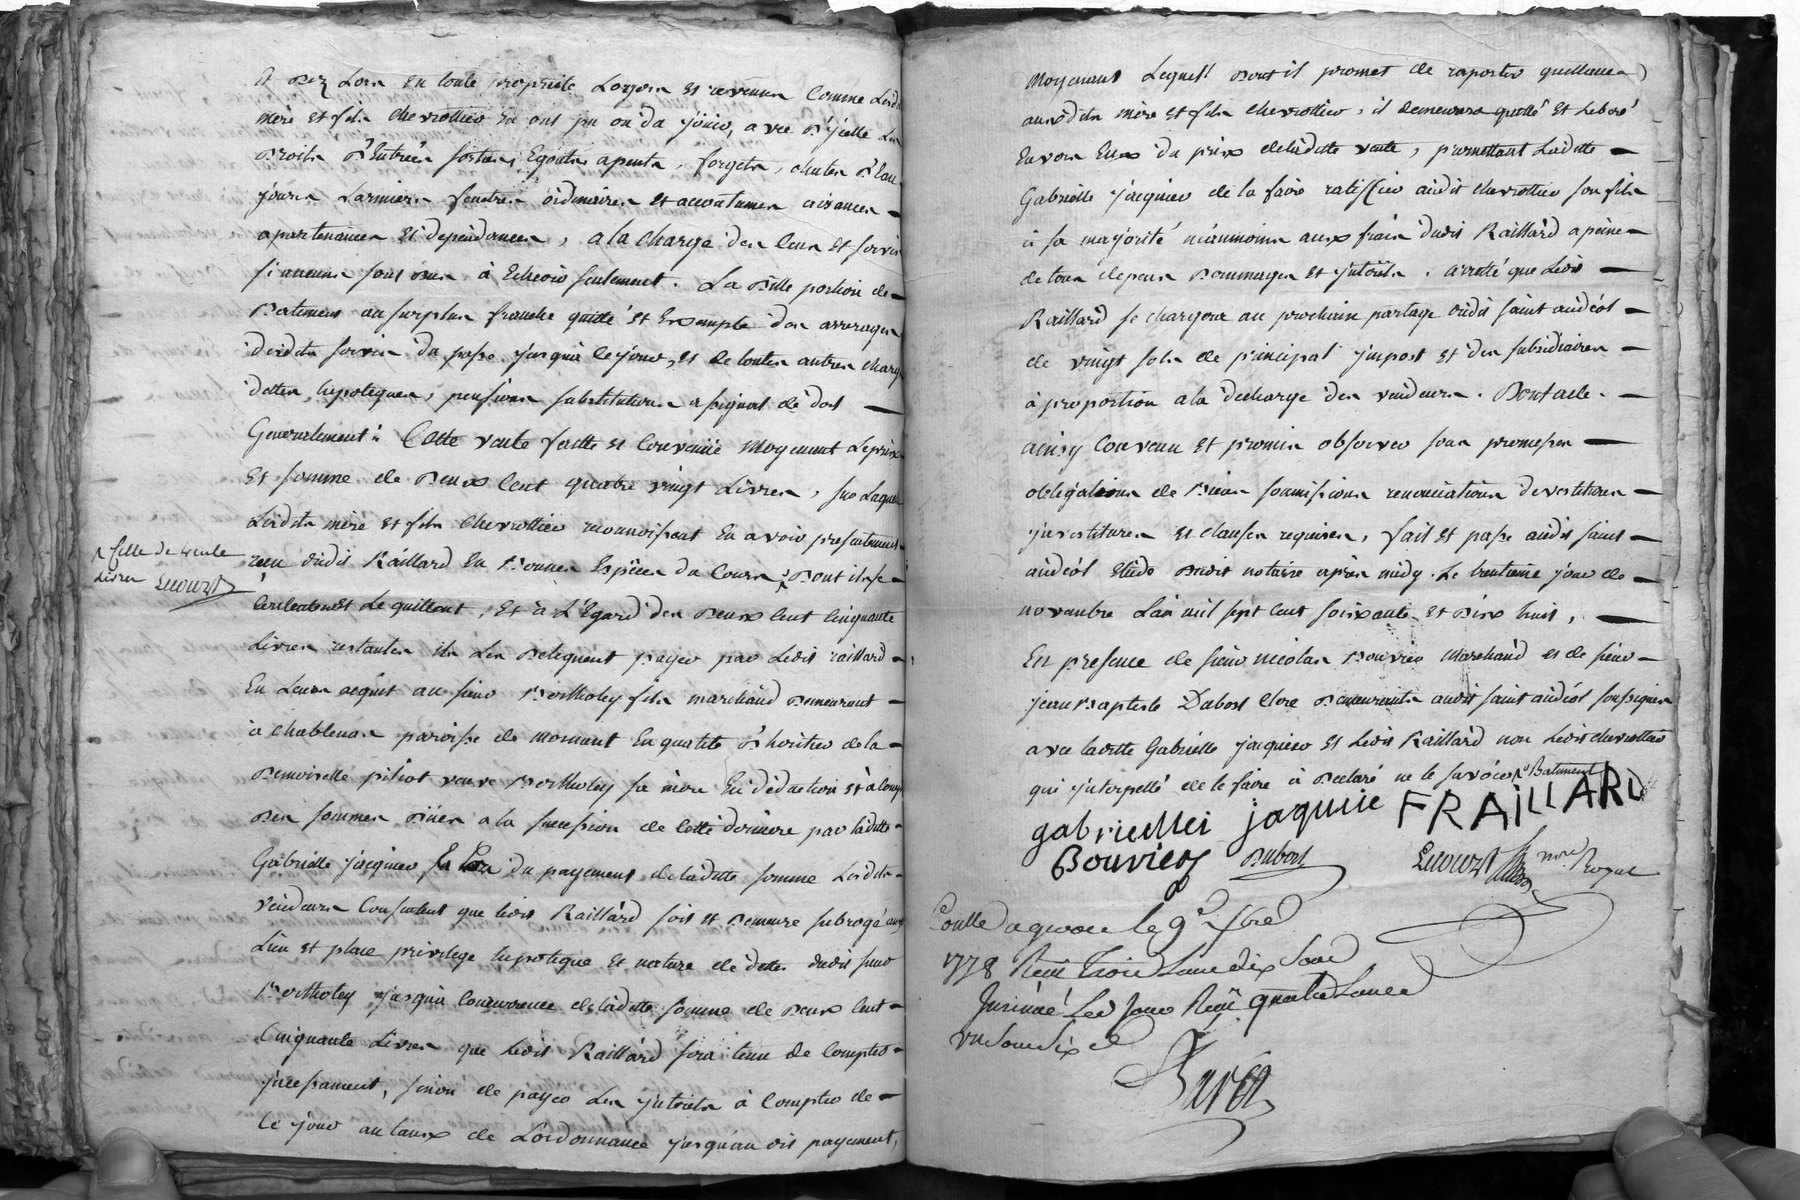 mère et fils chevrottier en ont pu ou dû jouir, avec d'icelle les
droits d'Entrées sorties, Egouts apents, forgets, chutes d'Eau
jours Larmiers fenetres ordinaires et accoutumes aisances
apartenances et dépendances, a la charge des cens et servis
si aucuns sont dus à Echeoir seulement. La ditte portion de
Batiment au surplus franche quitte et Exempte des arrerages
desdits servis du passé jusqu'à ce jour, et de toutes autres charges
dettes, hypoteques, pensions substitutions assignat de dot
Generalement. Cette vente faitte et Convenüe moyennant le prix
Et somme de deux Cent quatre vingt Livres, sur Laquelle
Lesdits mère et fils Chevrottier reconnoissent En avoir presentement
reçu dudit Raillard En Bonnes Espèces du Cours dont ils se
Contentent Le quittent, Et à L'Egard des deux Cent Cinquante
Livres restantes ils Les deleguent payer par Ledit raillard
En Leurs acquit au sieur Bertholey fils marchand demeurant
à Chablenas paroisse de Mornant En qualité d'héritier de la
Demoiselle pitiot veuve Bertholey sa mère En déduction et à Compte
des sommes düées a la succession de Cette derniere par ladite
Gabrielle jacquier du payement de ladite somme Lesdits
Vendeurs Consentent que Ledit Raillard soit et demeure subrogé aux
Lieu et place privilege hypoteque et nature de dette dudit sieur
Bertholey jusqu'à Concurrence de ladite somme de deux Cent
Cinquante Livres que Ledit Raillard sera tenu de Compter
incessament, sinon de payer Les interets à Compter de
Ce jour au taux de Lordonnance jusqu'au dit payement,
celle de trente
Livres Lecourt
Moyenant Lequel dont il promet de raporter quittance
auxdits mère et fils Chevrottier, il demeurera quitté et Liberé
Envers Eux du prix de ladite vente, promettant Ladite
Gabrielle jacquier de la faire ratiffier audit Chevrottier son fils
à sa majorité néanmoins aux frais dudit Raillard a peine
de tous depens dommages et interets. arreté que Ledit
Raillard se chargera au prochain partage dudit saint andéol
de vingt sols de principal impost et des subsidiaires
à proportion a la decharge des vendeurs. Dont acte.
ainsy Convenu et promis observer sous promesses
obligations de Biens soumissions renonciations devestitures
investitures et clauses requises, fait et passé audit saint
andéol Etude dudit notaire après midy. Le trentieme jour de
novembre L'an mil sept cent soixante et dix huit,
En presence de sieur nicolas Bouvier Marchand et de sieur
jean Baptiste Dubost Clerc demeurants audit saint andéol soussignés
avec ladite Gabrielle jacquier et Ledit Raillard non Ledit chevrottier
qui interpellé de le faire à declaré ne le savoir. Batiment
gabriellei jaquiie FRAILLARD
Bouvier Dubost Lecourt nre Royal
Conllé a givors le 9e Xbre
1778 Reçu Trois Livres dix Sous
Insinué Led Jour Reçu quatre Livres
un Sous Six d